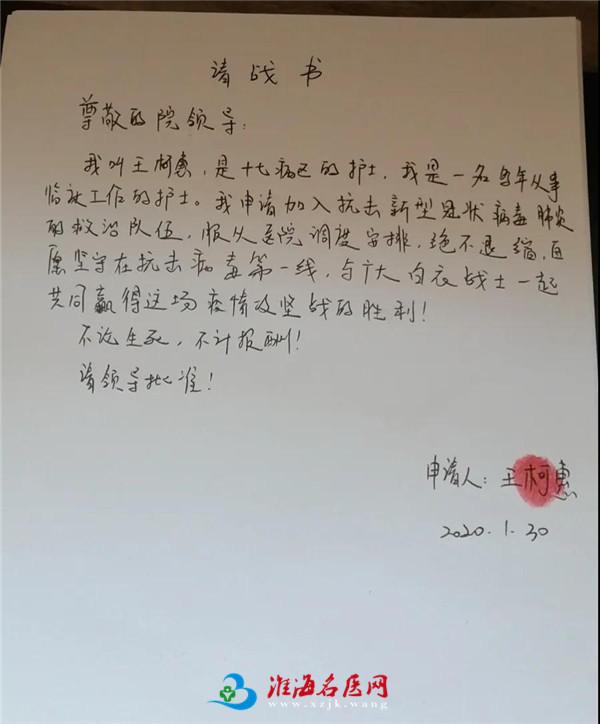 请战书
尊敬的院领导:
我叫王柯惠,是十七病区的护士,我是一名多年从事
临床工作的护士。我申请加入抗击新型冠状病毒肺炎
的救治队伍,服从医院调度安排,绝不退缩,自
愿坚守在抗击病毒第一线,与广大白衣战士一起
共同赢得这场疫情攻坚战的胜利!
不论生死,不计报酬!
请领导批准!
申请人:王柯惠
2020.1.30
淮海名医网
www.xzjk.wang